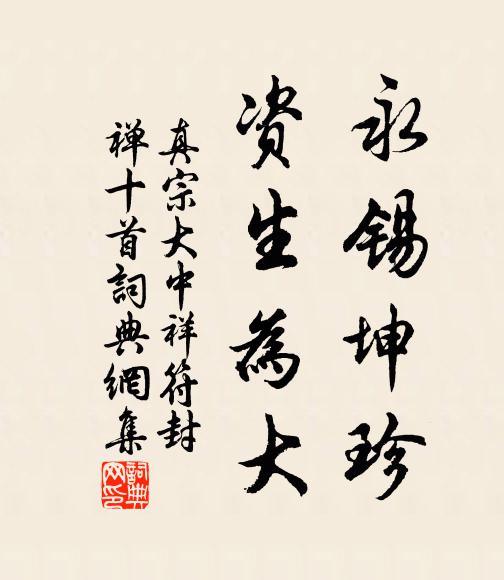 永錫坤珍
資生為大
真宗大中祥符封
禅十首詞典網集
詞典
网印